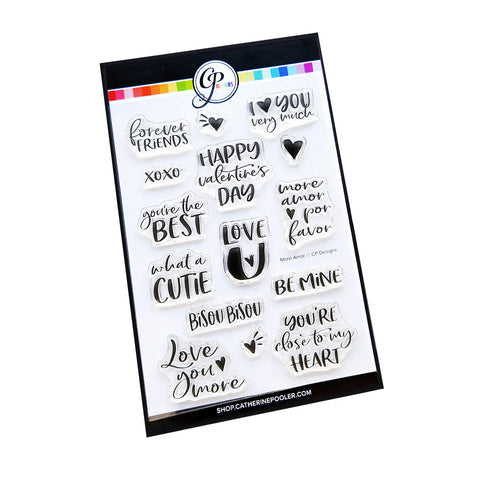 CP
DESIGNS
forever
FRIENDS
I ♥ YOU
very much
XOXO
HAPPY
valentine's
DAY
you're the
BEST
more
amor
♥ por
favor
LOVE
U
what a
CUTIE
More Amor ♡ CP Designs
BE MINE
BISOU BISOU
YOU'RE
close to my
HEART
Love
you ♥
more
SHOP.CATHERINEPOOLER.COM